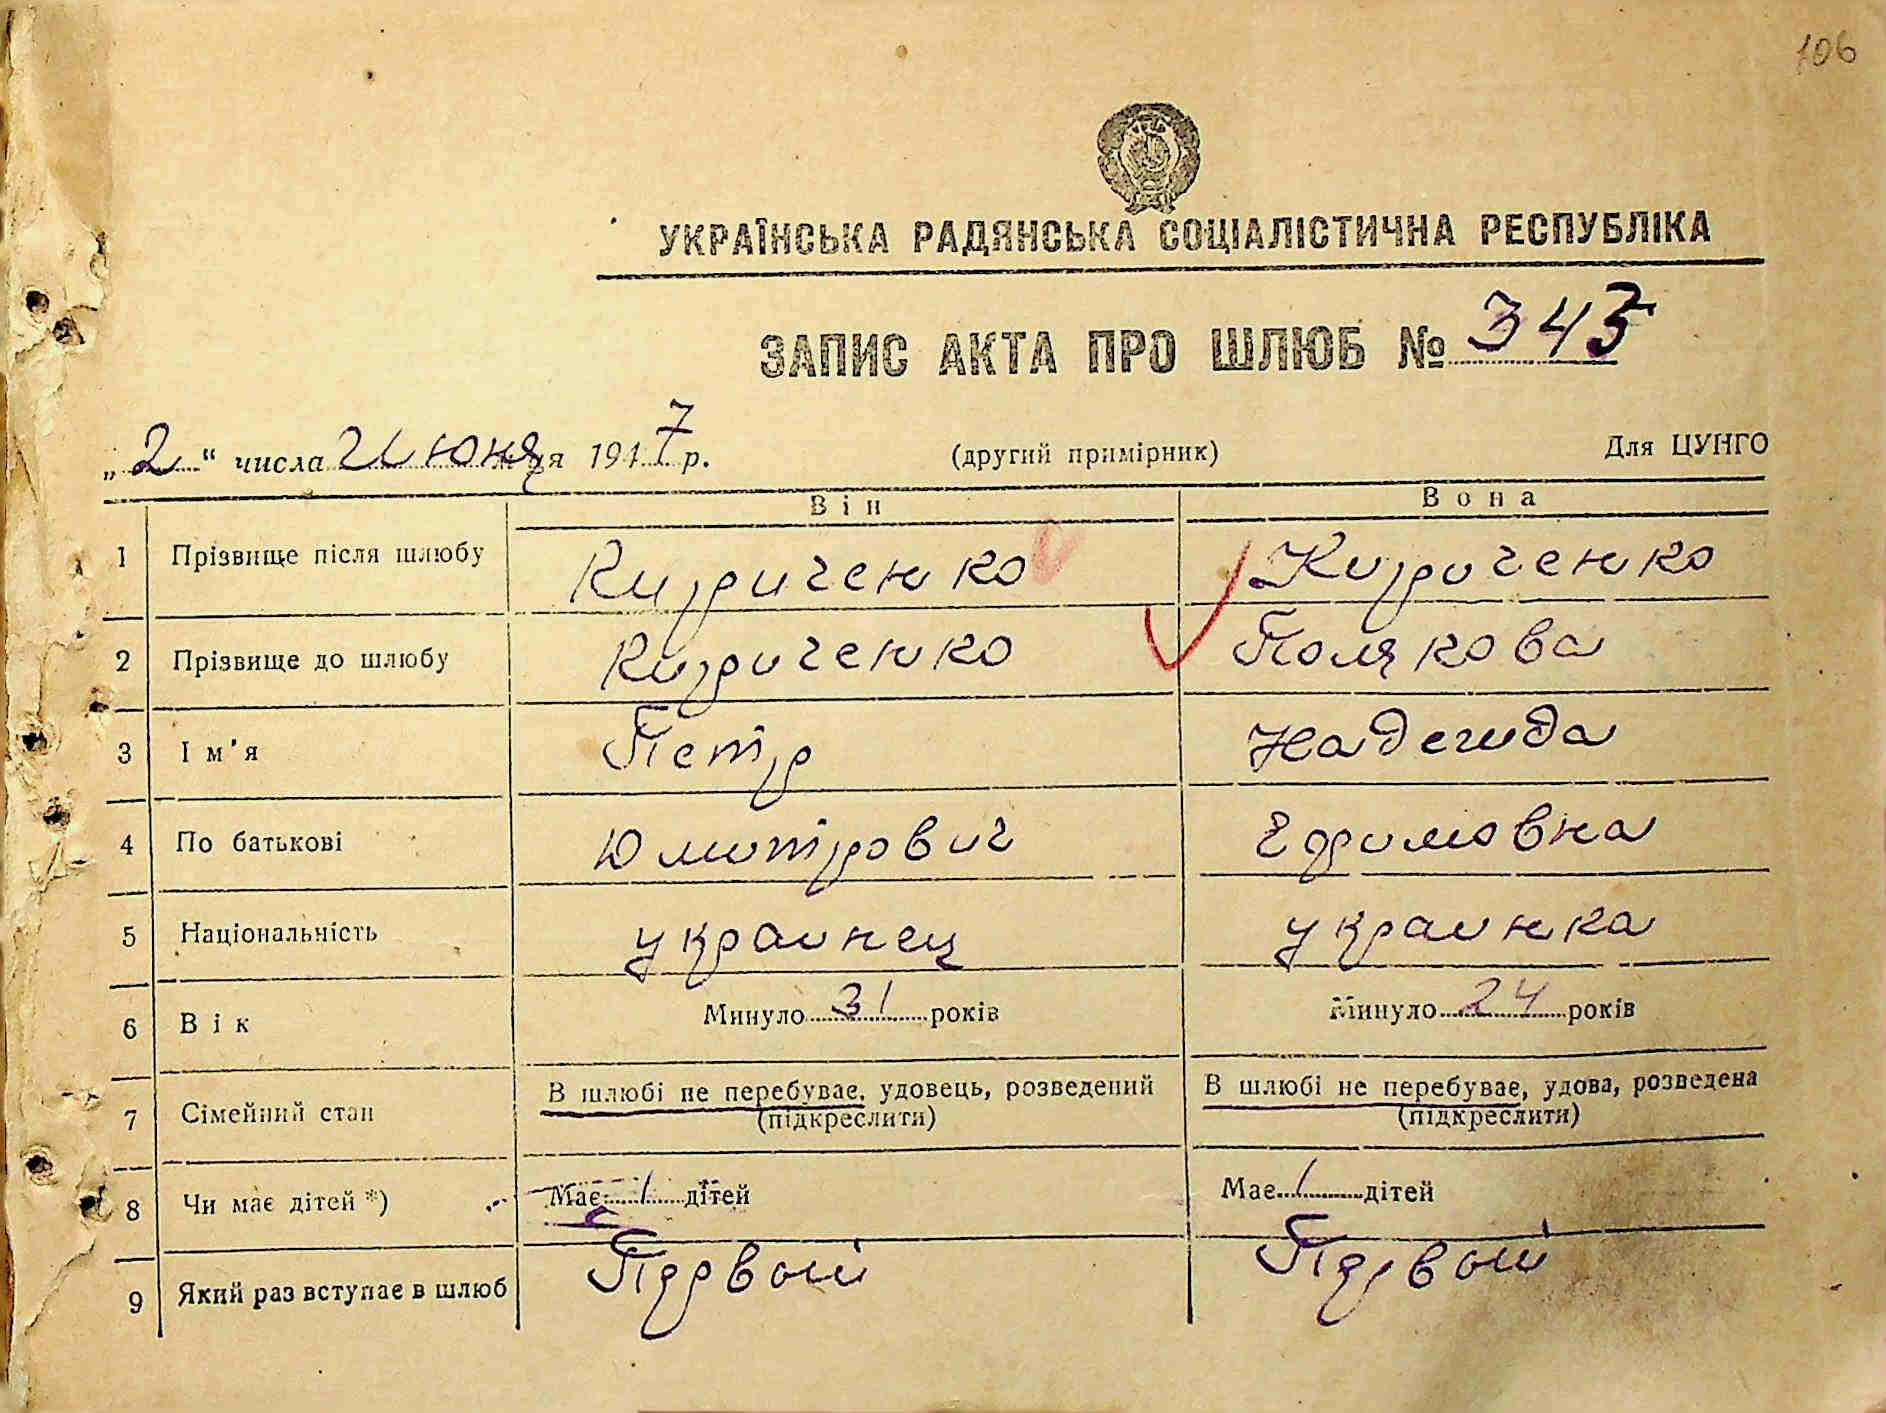 106
УКРАЇНСЬКА РАДЯНСЬКА СОЦІАЛІСТИЧНА РЕСПУБЛІКА
ЗАПИС АКТА ПРО ШЛЮБ № 343
„2“ числа июня ця 1947 р. (другий примірник) Для ЦУНГО
Він Вона
1 Прізвище після шлюбу Кириченко Кириченко
2 Прізвище до шлюбу Кириченко Полякова
3 Ім'я Петр Надежда
4 По батькові Дмитрович Ефимовна
5 Національність украинец украинка
6 Вік Минуло 31 років Минуло 24 років
7 Сімейний стан В шлюбі не перебуває, удовець, розведений В шлюбі не перебуває, удова, розведена
(підкреслити) (підкреслити)
8 Чи має дітей *) Має 1 дітей Має 1 дітей
9 Який раз вступає в шлюб Первый Первый